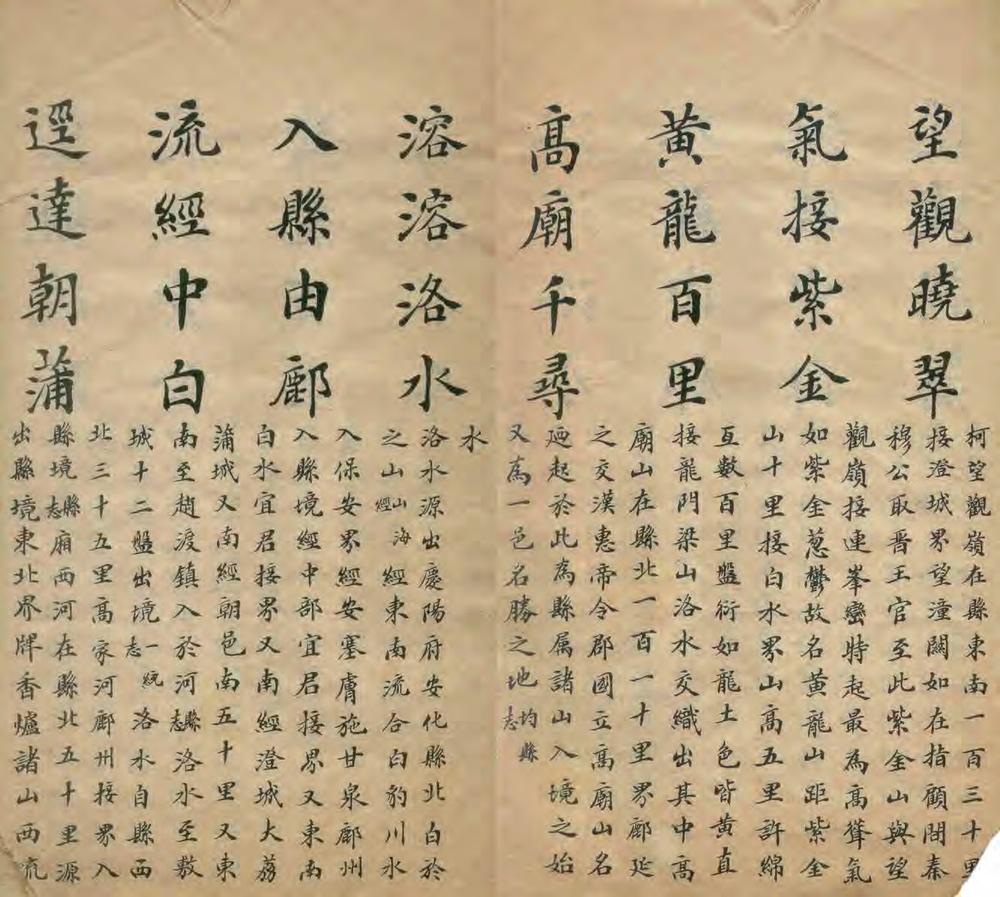 望觀曉翠
氣接紫金
黄龍百里
髙廟千尋
柯望觀嶺在縣東南一百三十里
接澄城界望潼關如在指顧間秦
穆公取晋王官至此紫金山與望
觀嶺接連峯巒特起最為髙聳氣
如紫金蔥鬱故名黄龍山距紫金
山十里接白水界山髙五里許綿
亙數百里盤衍如龍土色皆黄直
接龍門梁山洛水交織出其中髙
廟山在縣北一百一十里界鄜延
之交漢惠帝令郡國立髙廟山名
廼起於此為縣属諸山入境之始
又為一邑名勝之地均縣志
溶溶洛水
入縣由鄜
流經中白
逕達朝蒲
水
洛水源出慶陽府安化縣北白於
之山山海經經東南流合白豹川水
入保安界經安塞膚施甘泉鄜州
入縣境經中部宜君接界又東南
白水宜君接界又南經澄城大荔
蒲城又南經朝邑南五十里又東
南至趙渡鎮入於河縣志洛水至敷
城十二盤出境一統志洛水自縣西
北三十五里髙家河鄜州接界入
縣境縣志廂西河在縣北五十里源
出縣境東北界牌香爐諸山西流